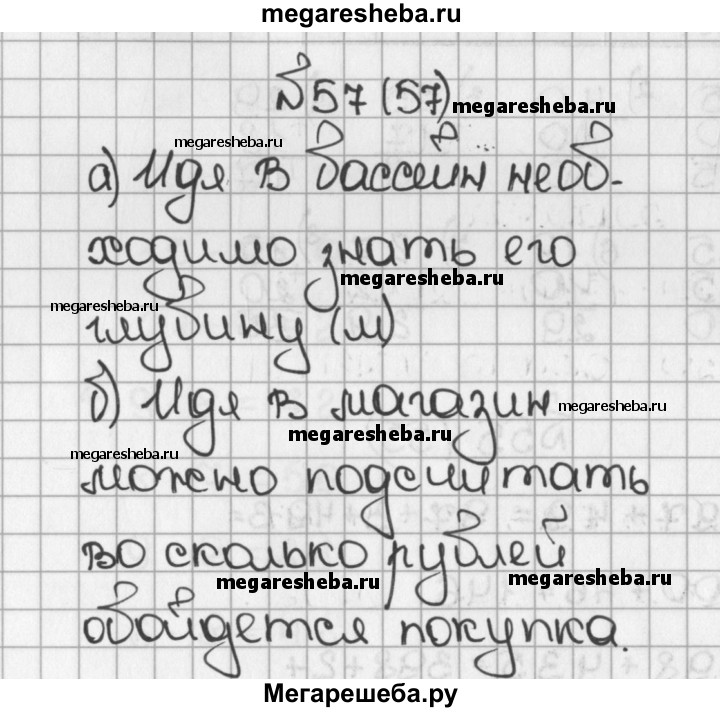 megaresheba.ru
№57 (57)
megaresheba.ru
megaresheba.ru
а) Идя в бассейн необ-
ходимо знать его
megaresheba.ru
megaresheba.ru
глубину (м)
б) Идя в магазин
megaresheba.ru
megaresheba.ru
megaresheba.ru
можно подсчитать
во сколько рублей
megaresheba.ru
megaresheba.ru
обойдется покупка.
Мегарешеба.ру